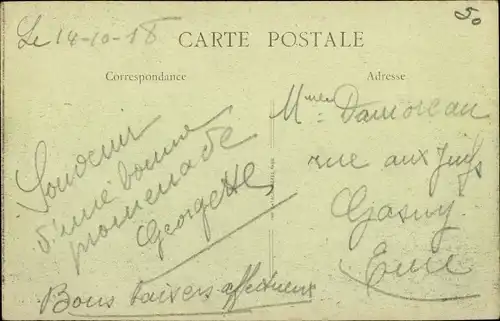 Le 14-10-18
50
CARTE POSTALE
Correspondance
Adresse
Souvenir
d'une bonne
promenade
Georgette
Bons baisers affectueux
Mme Damoreau
rue aux Juifs
Gasny
Eure